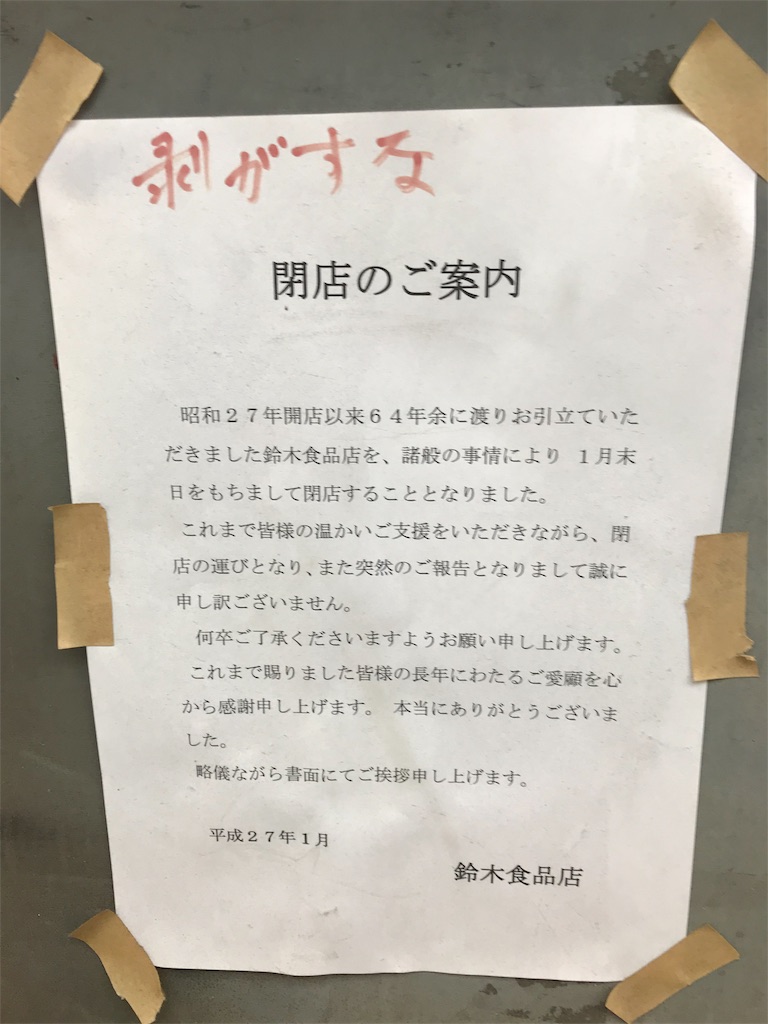 剥がすな
閉店のご案内
昭和２７年開店以来６４年余に渡りお引立ていた
だきました鈴木食品店を、諸般の事情により １月末
日をもちまして閉店することとなりました。
これまで皆様の温かいご支援をいただきながら、閉
店の運びとなり、また突然のご報告となりまして誠に
申し訳ございません。
何卒ご了承くださいますようお願い申し上げます。
これまで賜りました皆様の長年にわたるご愛顧を心
から感謝申し上げます。 本当にありがとうございま
した。
略儀ながら書面にてご挨拶申し上げます。
平成２７年１月
鈴木食品店